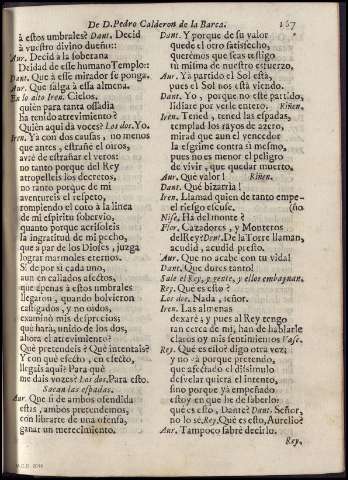 De D. Pedro Calderon de la Barca. 167
à estos umbrales? Dant. Decid
à vuestro divino dueño::
Aur. Decid à la soberana
Deidad de esse humano Templo::
Dant. Que à esse mirador se ponga.
Aur. Que salga à essa almena.
En lo alto Iren. Cielos,
quien para tanta ossadia
ha tenido atrevimiento?
Quien aqui dà voces? Los dos. Yo.
Iren. Yà con dos causas, no menos
que antes, estrañè el oiros,
avrè de estrañar el veros:
no tanto porque del Rey
atropelleis los decretos
no tanto porque de mi
aventureis el respeto,
rompiendo el coto à la linea
de mi espiritu sobervio,
quanto porque acrisoleis
la ingratitud de mi pecho,
que à par de los Dioses, juzga
lograr marmoles eternos.
Si de por si cada uno,
aun en callados afectos,
que apenas à estos umbrales
llegaron, quando bolvieron
castigados, y no oidos,
examinò mis desprecios;
què harà, unido de los dos,
ahora el atrevimiento?
Què pretendeis? Què intentais?
Y con què efecto, en efecto,
llegais aqui? Para què
me dais voces? Los dos. Para esto.
Sacan las espadas.
Aur. Que si de ambos ofendida
estàs, ambos pretendemos,
con librarte de una ofensa,
ganar un merecimiento.
Dant. Y porque de su valor
quede el otro satisfecho,
queremos que seas testigo
tu misma de nuestro esfuerzo.
Aur. Yà partido el Sol està,
pues el Sol nos està viendo.
Dant. Yo, porque no este partido,
lidiare por verle entero. Riñen.
Iren. Tened, tened las espadas,
templad los rayos de azero,
mirad que aun el vencedor
la esgrime contra si mesmo,
pues no es menor el peligro
de vivir, que quedar muerto.
Aur. Què valor! Riñen.
Dant. Què bizarria!
Iren. Llamad quien de tanto empe-
el riesgo escuse. (ño
Nise. Ha del monte?
Flor. Cazadores, y Monteros
del Rey? Dent. De la Torre llaman,
acudid, acudid presto.
Aur. Que no acabe con tu vida!
Dant. Que dures tanto!
Sale el Rey, y gente, y ellos embaynan.
Rey. Què es esto?
Los dos. Nada, señor.
Iren. Las almenas
dexarè; y pues al Rey tengo
tan cerca de mi, han de hablarle
claros oy mis sentimientos Vase.
Rey. Què es esto? digo otra vez;
y no yà porque pretendo,
que afectado el dissimulo
desvelar quiera el intento,
sino porque yà empeñado
estoy en que he de saberlo:
què es esto, Dante? Dant. Señor,
no lo sè. Rey. Què es esto, Aurelio?
Aur. Tampoco sabrè decirlo.
Rey.